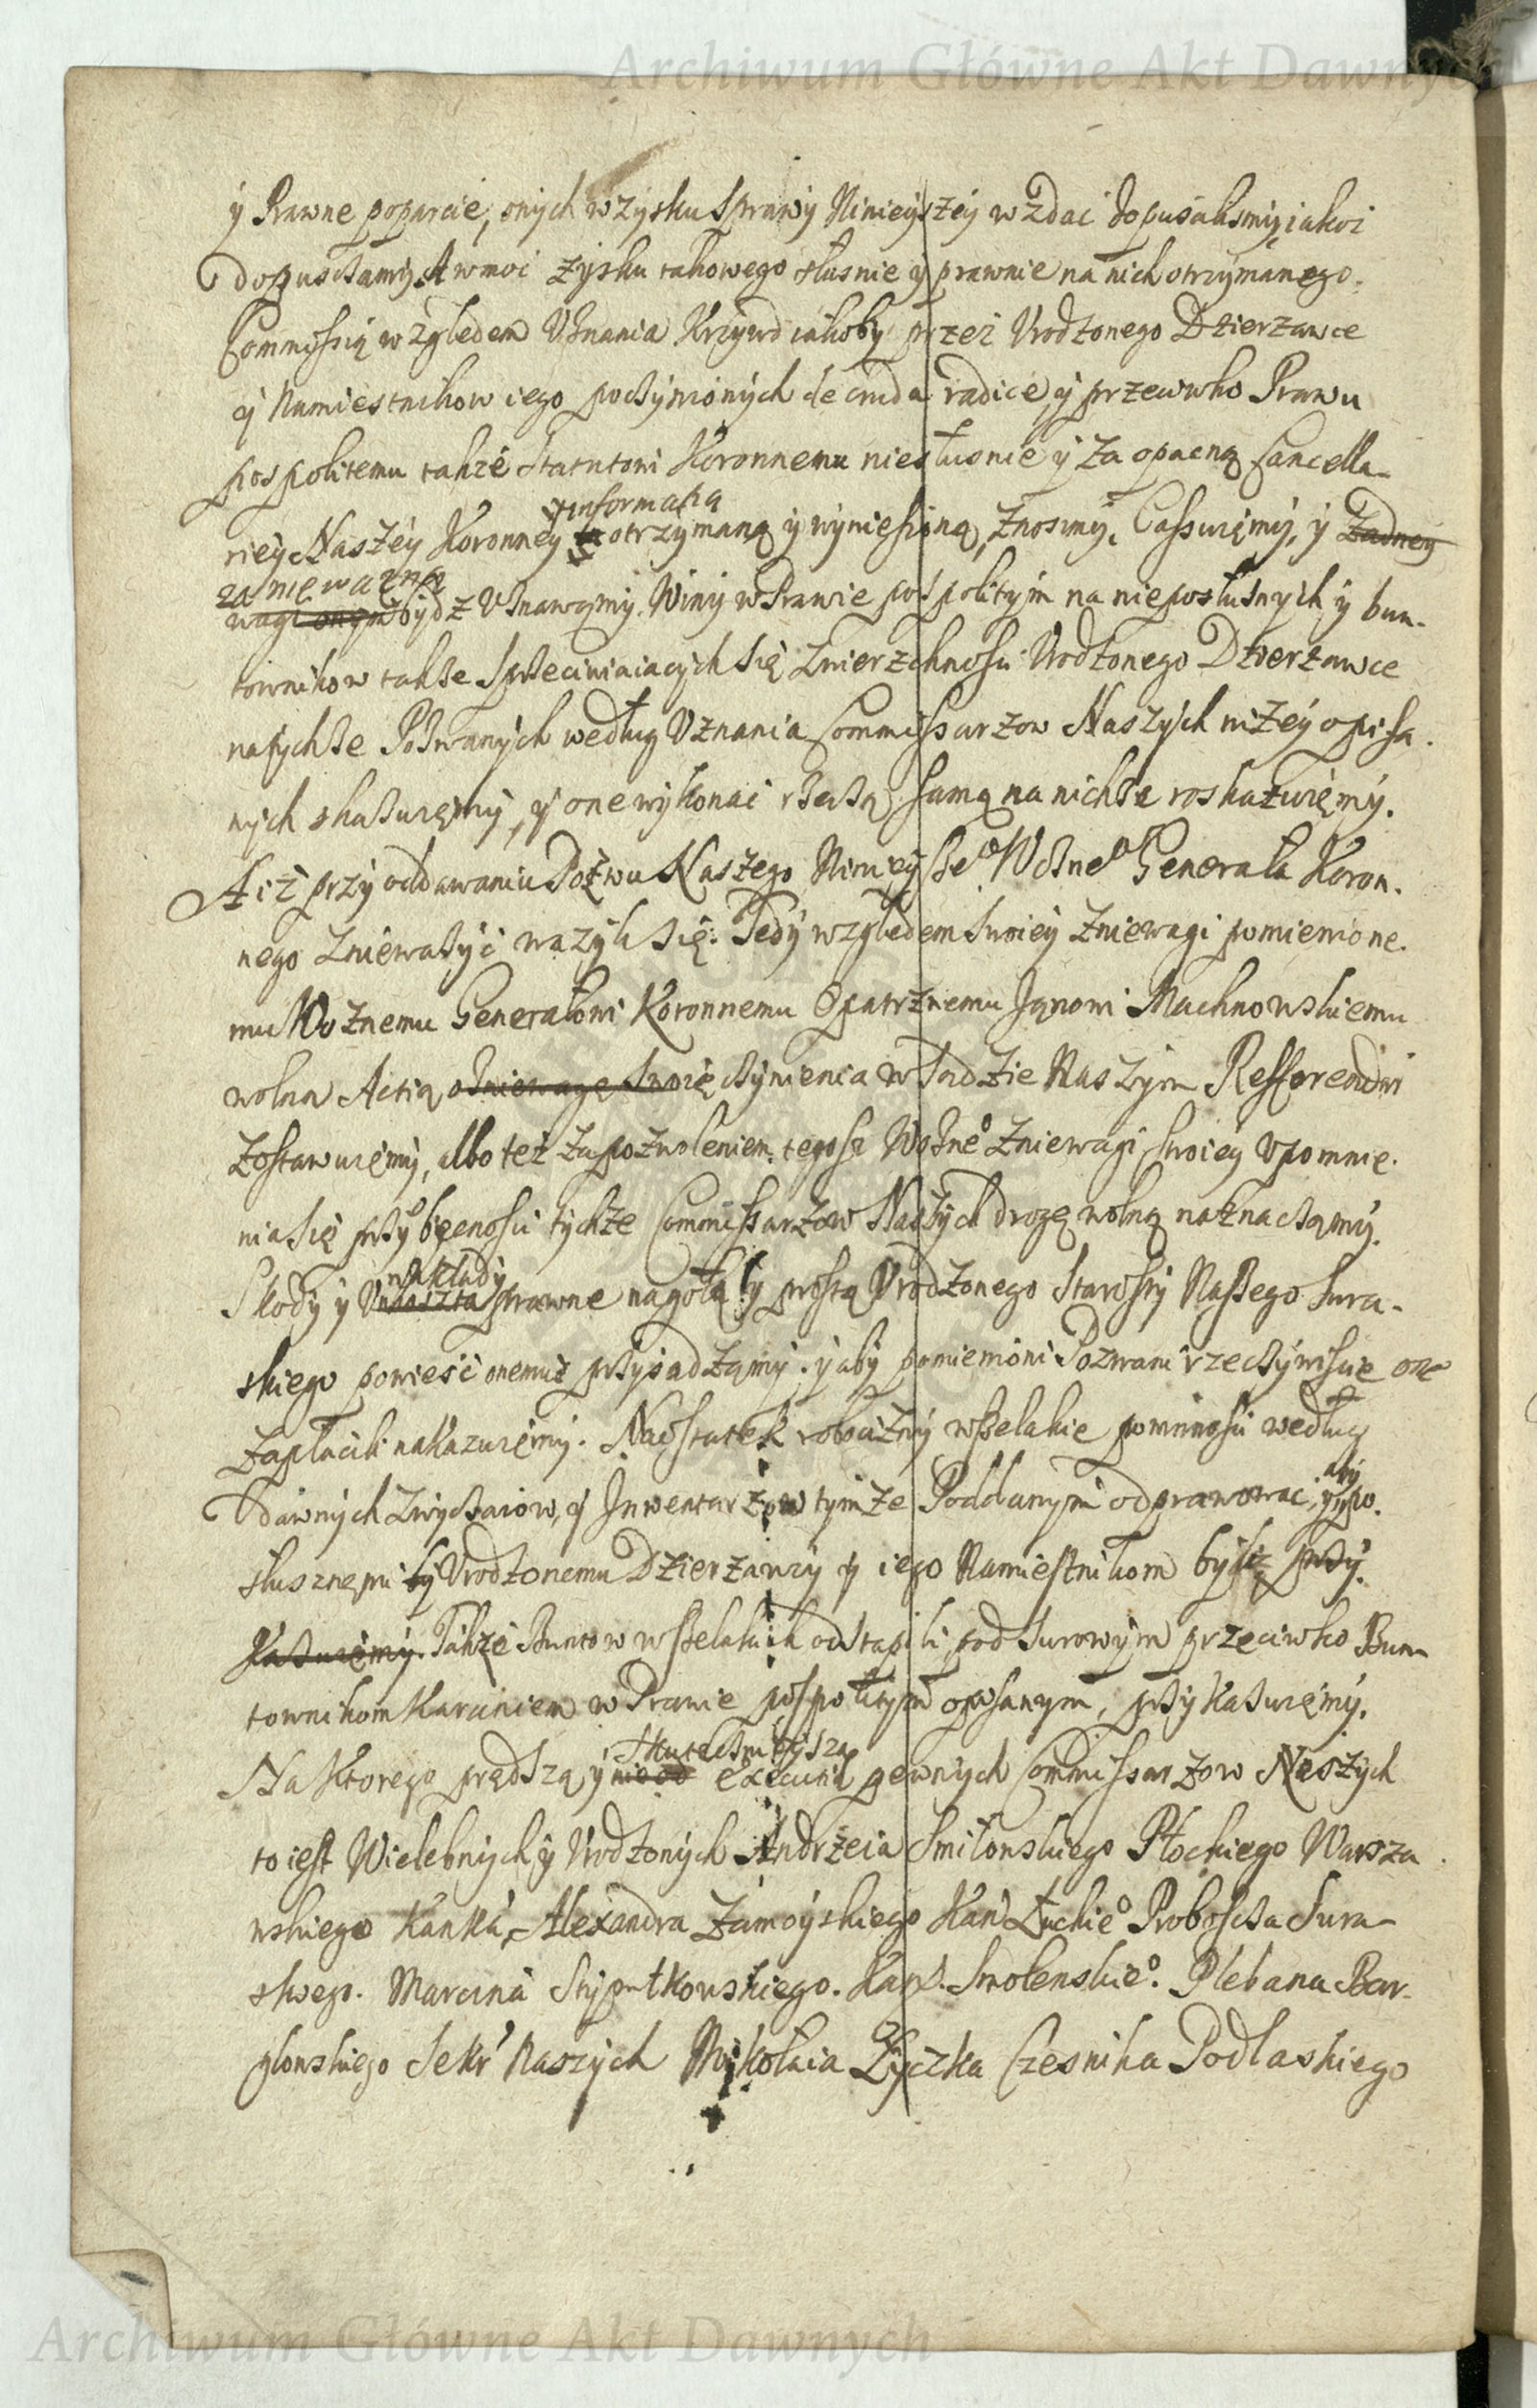 Archiwum Główne Akt Dawnych
y Prawne poparcie, onych w zysku Sprawy Ninieyszey w zdać dopuścilismy, iakoż
dopusczamy. A w moc zysku takowego słusnie y prawnie na nich otrzymanego.
Commissią względem Uznania Krzywd iakoby przez Urodzonego Dzierzawce
y Namiestnikow iego poczynionych de cruda radice, y przeciwko Prawu
pospolitemu takze Statutowi Koronnemu niesłusnie y za opaczną Cancella-
informatią
riey Naszey Koronney otrzymaną y wyniesioną, znosimy, Cassuięmy, y żadney
za nieważną
wagi onym bydz Uznawamy. Winy w Prawie pospolitym na nieposłusnych y bun-
townikow takze Spreciwiaiących się Zwierzchnosci Urodzonego Dzierzawce
na tychze Pozwanych według Uznania Commissarzow Naszych niżey opisa-
nych skazuięmy, y one wykonać rzeczą samą na nichze roskazuięmy.
A iż przy oddawaniu Pozwu Naszego Ninieysze° Wozne° Generała Koron-
nego znieważyć ważyli się. Tedy względem swoiey zniewagi pomienione-
mu Woznemu Generałowi Koronnemu Opatrznemu Janowi Machnowskiemu
wolną Actią o zniewagę swoię czynienia w Sądzie Naszym Refferendar
zostawuięmy, albo też za pozwoleniem tegosz Wozne° zniewagi swoiey upomnie-
nia się przy obecnosci tychze Commissarzow Naszych drogę wolną naznaczamy.
nakłady
Skody y prawne na gołą y prostą Urodzonego Starosty Naszego Sura-
skiego powieść onemuż przysądzamy. y aby pomienioni Pozwani rzeczywiscie one
zapłacili nakazuięmy. Naostatek robocizny wszelakie powinnosci według
aby
dawnych zwyczaiow, y Inwentarzow tymże Poddanym odprawować, y po-
słusznemi Urodzonemu Dzierzawcy y iego Namiestnikom byli przy-
kazuięmy. Także Buntow wszelakich odstąpili pod surowym przeciwko Bun-
townikom Karaniem w Prawie pospolitym opisanym, przykazuięmy.
skutecznieyszą
Na Ktorego prędszą y executią pewnych Commissarzow Naszych
to iest Wielebnych y Urodzonych Andrzeia Smilowskiego Płockiego Warsza-
wskiego Kanka, Alexandra Zamoyskiego Kan Łuckie° Proboscza Sura-
skiego. Marcina Szypułkowskiego. Kan. Smolenskie°. Plebana Bar-
glowskiego Sekr Naszych Mikołaia Zyczka Czesnika Podlaskiego
Archiwum Główne Akt Dawnych